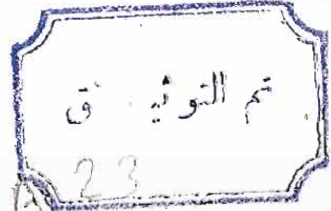 تم التوثيق
23